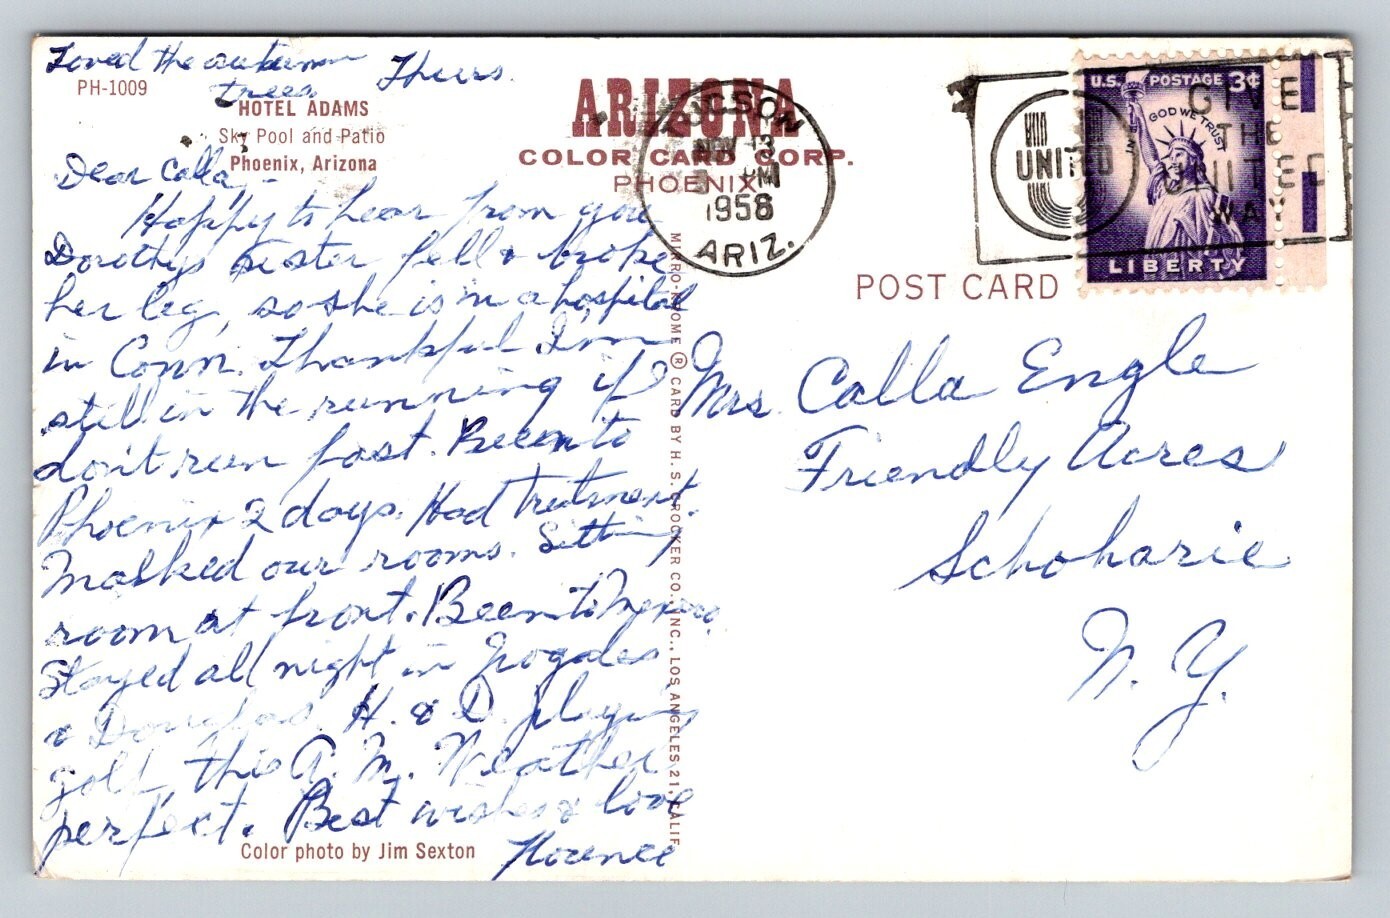 Loved the autumn
trees
Thurs.
PH-1009
HOTEL ADAMS
Sky Pool and Patio
Phoenix, Arizona
ARIZONA
COLOR CARD CORP.
PHOENIX
TUCSON
NOV 13
PM
1958
ARIZ.
UNITED
GIVE
THE
UNITED
WAY
U.S. POSTAGE 3¢
IN GOD WE TRUST
LIBERTY
POST CARD
Dear Calla,-
Happy to hear from you
Dorothys sister fell & broke
her leg, so she is in a hospital
in Conn. Thankful I'm
still in the running if I
don't run fast. Been to
Phoenix 2 days. Had treatment.
Masked our rooms. Sitting
room at front. Been to Mexico.
Stayed all night in Nogales
& Douglas. H. & D. playing
golf this A.M. Weather
perfect. Best wishes & love
Florence
Color photo by Jim Sexton
MIRRO-KROME ® CARD BY H. S. CROCKER CO., INC., LOS ANGELES 21, CALIF.
Mrs. Calla Engle
Friendly Acres
Schoharie
N. Y.